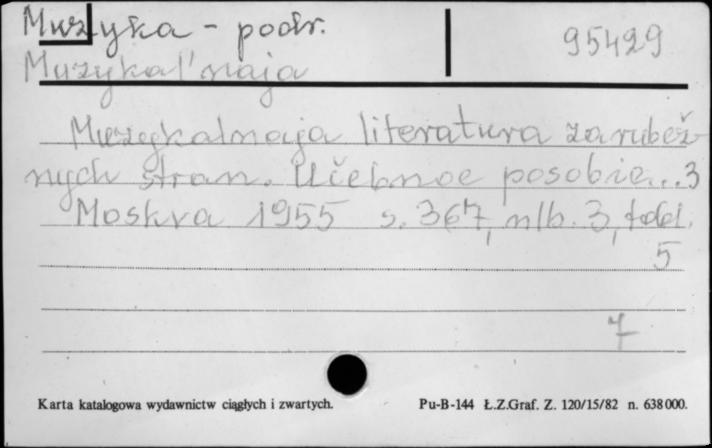 Muzyka - podr.
95429
Muzykal'naja
Muzykalnaja literatura zarubež-
nych stran. Učebnoe posobie...3
Moskva 1955 s. 367, nlb. 3, tabl.
5
7
Karta katalogowa wydawnictw ciągłych i zwartych. Pu-B-144 Ł.Z.Graf. Z. 120/15/82 n. 638000.